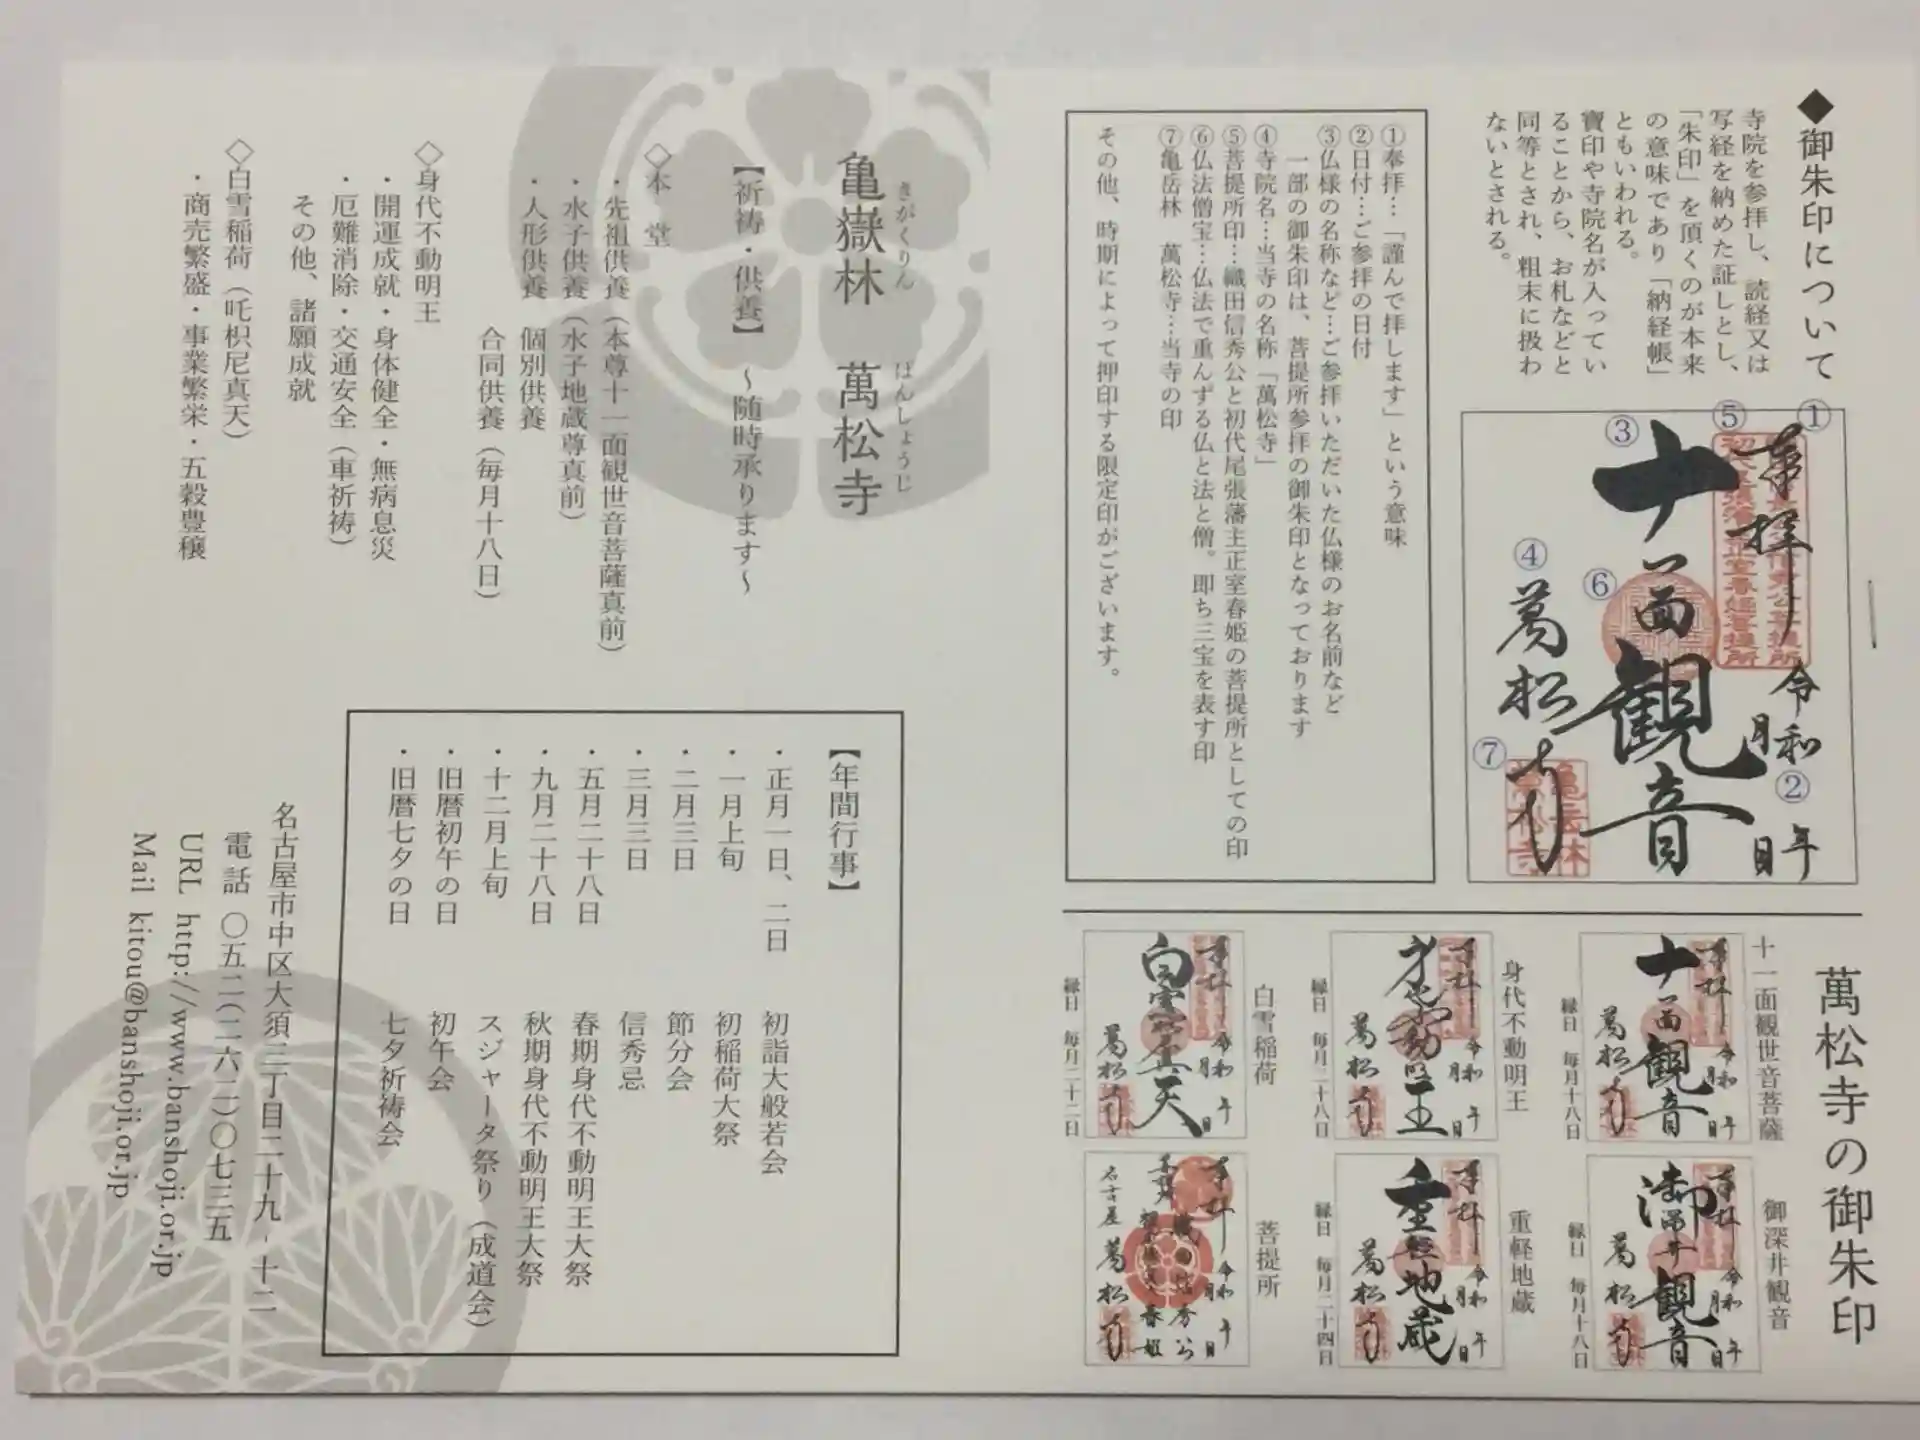 ◆御朱印について
寺院を参拝し、読経又は
写経を納めた証しとし、
「朱印」を頂くのが本来
の意味であり「納経帳」
ともいわれる。
寶印や寺院名が入ってい
ることから、お札などと
同等とされ、粗末に扱わ
ないとされる。
①
⑤
③
④
⑥
②
⑦
奉拝
令和 年 月 日
十一面観音
萬松寺
①奉拝…「謹んで拝します」という意味
②日付…ご参拝の日付
③仏様の名称など…ご参拝いただいた仏様のお名前など
一部の御朱印は、菩提所参拝の御朱印となっております
④寺院名…当寺の名称「萬松寺」
⑤菩提所印…織田信秀公と初代尾張藩主正室春姫の菩提所としての印
⑥仏法僧宝…仏法で重んずる仏と法と僧。即ち三宝を表す印
⑦亀岳林 萬松寺…当寺の印
その他、時期によって押印する限定印がございます。
萬松寺の御朱印
十一面観世音菩薩
奉拝
令和 年 月 日
十一面観音
萬松寺
縁日 毎月十八日
身代不動明王
奉拝
令和 年 月 日
萬松寺
縁日 毎月二十八日
白雪稲荷
奉拝
令和 年 月 日
萬松寺
縁日 毎月二十二日
御深井観音
奉拝
令和 年 月 日
御深井観音
萬松寺
縁日 毎月十八日
重軽地蔵
奉拝
令和 年 月 日
重軽地蔵
萬松寺
縁日 毎月二十四日
菩提所
奉拝
令和 年 月 日
名古屋 萬松寺
亀嶽林 萬松寺
きがくりん ばんしょうじ
【祈祷・供養】 〜随時承ります〜
◇本 堂
・先祖供養（本尊十一面観世音菩薩真前）
・水子供養（水子地蔵尊真前）
・人形供養 個別供養
合同供養（毎月十八日）
◇身代不動明王
・開運成就・身体健全・無病息災
・厄難消除・交通安全（車祈祷）
その他、諸願成就
◇白雪稲荷（吒枳尼真天）
・商売繁盛・事業繁栄・五穀豊穣
【年間行事】
・正月一日、二日 初詣大般若会
・一月上旬 初稲荷大祭
・二月三日 節分会
・三月三日 信秀忌
・五月二十八日 春期身代不動明王大祭
・九月二十八日 秋期身代不動明王大祭
・十二月上旬 スジャータ祭り（成道会）
・旧暦初午の日 初午会
・旧暦七夕の日 七夕祈祷会
名古屋市中区大須三丁目二十九‐十二
電話 〇五二（二六二）〇七三五
URL http://www.banshoji.or.jp
Mail kitou@banshoji.or.jp